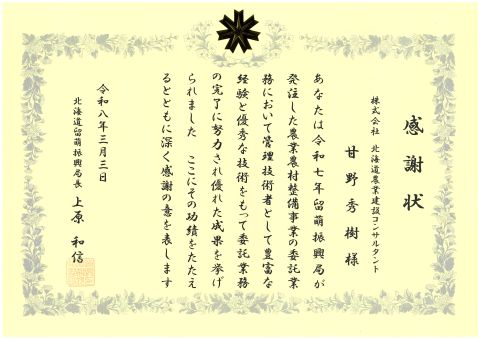 感謝状
株式会社 北海道農業建設コンサルタント
甘野秀樹様
あなたは令和七年留萌振興局が
発注した農業農村整備事業の委託業
務において管理技術者として豊富な
経験と優秀な技術をもって委託業務
の完了に努力され優れた成果を挙げ
られました ここにその功績をたたえ
るとともに深く感謝の意を表します
令和八年三月三日
北海道留萌振興局長 上原和信